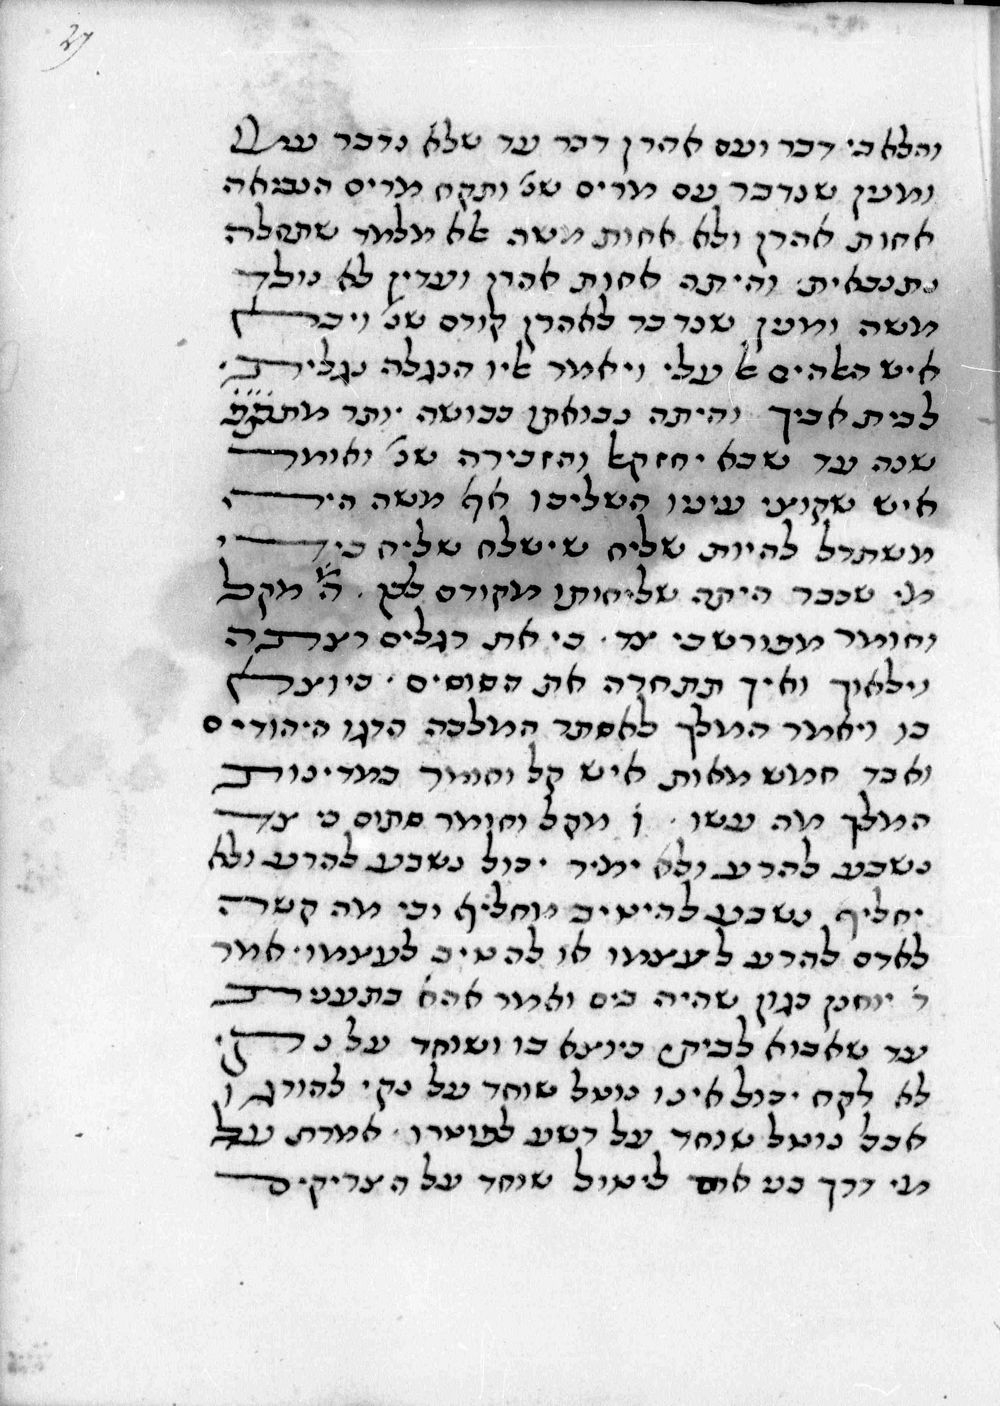 והלא כי דבר ועם אהרן דבר עד שלא נדבר עמו
ומנין שנדבר עם מרים שנ' ותקח מרים הנביאה
אחות אהרן ולא אחות משה אלא מלמד שתחלה
נתנבאית והיתה אחות אהרן ועדין לא נולד
משה ומנין שנדבר לאהרן קודם שנ' ויבא
איש האהים א עלי ויאמר איו הנגלה נגליתי
לבית אביך והיתה נבואתן כבושה יותר מת
שנה עד שבא יחזקא והזכירה שנ' ואומר
איש שקוצי עיניו השליכו אף משה היה
משתדל להיות שליח שישלח שליח כי
מפני שכבר היתה שליחותו מקודם לכן . ה' מקל
וחומר מפורש כי צד . כי את רגלים רצתה
וילאוך ואיך תתחרה את הסוסים . כיוצא
בו ויאמר המלך לאסתר המלכה הרגו היהודים
ואבד חמש מאות איש קל וחומר במדינות
המלך מה עשו . ו מקל וחומר סתום כי צד
נשבע להרע ולא ימיר יכול נשבע להרע ולא
יחליף נשבע להיטיב מחליף וכי מה קשרה
לאדם להרע לעצמו או להטיב לעצמו . אמר
ר' יוחנן כגון שהיה בים ואמר אהא בתענית
עד שאבוא לביתי כיוצא בו ושוחד על נקי
לא לקח יכול אינו נוטל שוחד על נקי להורגו
אבל נוטל שוחד על רשע לפוטרו . אמרת על
מי דרך בני אדם ליטול שוחד על הצדיקים